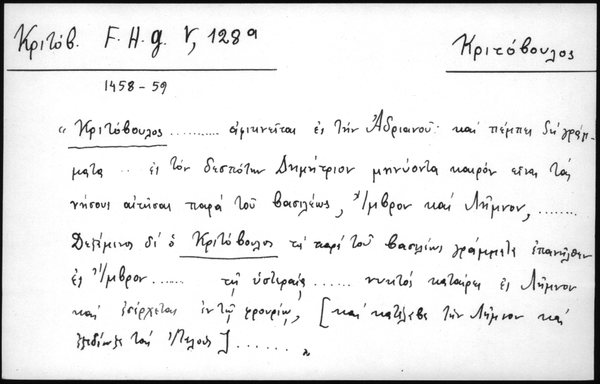 Κριτόβ. F. H. g. V, 128ᵃ
Κριτόβουλος
1458-59
« Κριτόβουλος .......... ἀφικνεῖται ἐς τὴν Ἀδριανοῦ· καὶ πέμπει δὴ γράμ-
ματα .. ἐς τὸν δεσπότην Δημήτριον μηνύοντα καιρὸν εἶναι τὰς
νήσους αἰτῆσαι παρὰ τοῦ βασιλέως, Ἴμβρον καὶ Λῆμνον, ........
Δεξάμενος δὲ ὁ Κριτόβουλος τὰ παρὰ τοῦ βασιλέως γράμματα ἐπανῆλθεν
ἐς Ἴμβρον ....... τῇ ὑστεραίᾳ ...... νυκτὸς καταίρει ἐς Λῆμνον
καὶ ἐσέρχεται ἐν τῷ φρουρίῳ, [καὶ κατέλαβε τὴν Λῆμνον καὶ
ἐξεδίωξε τοὺς Ἰταλοὺς] ...... »